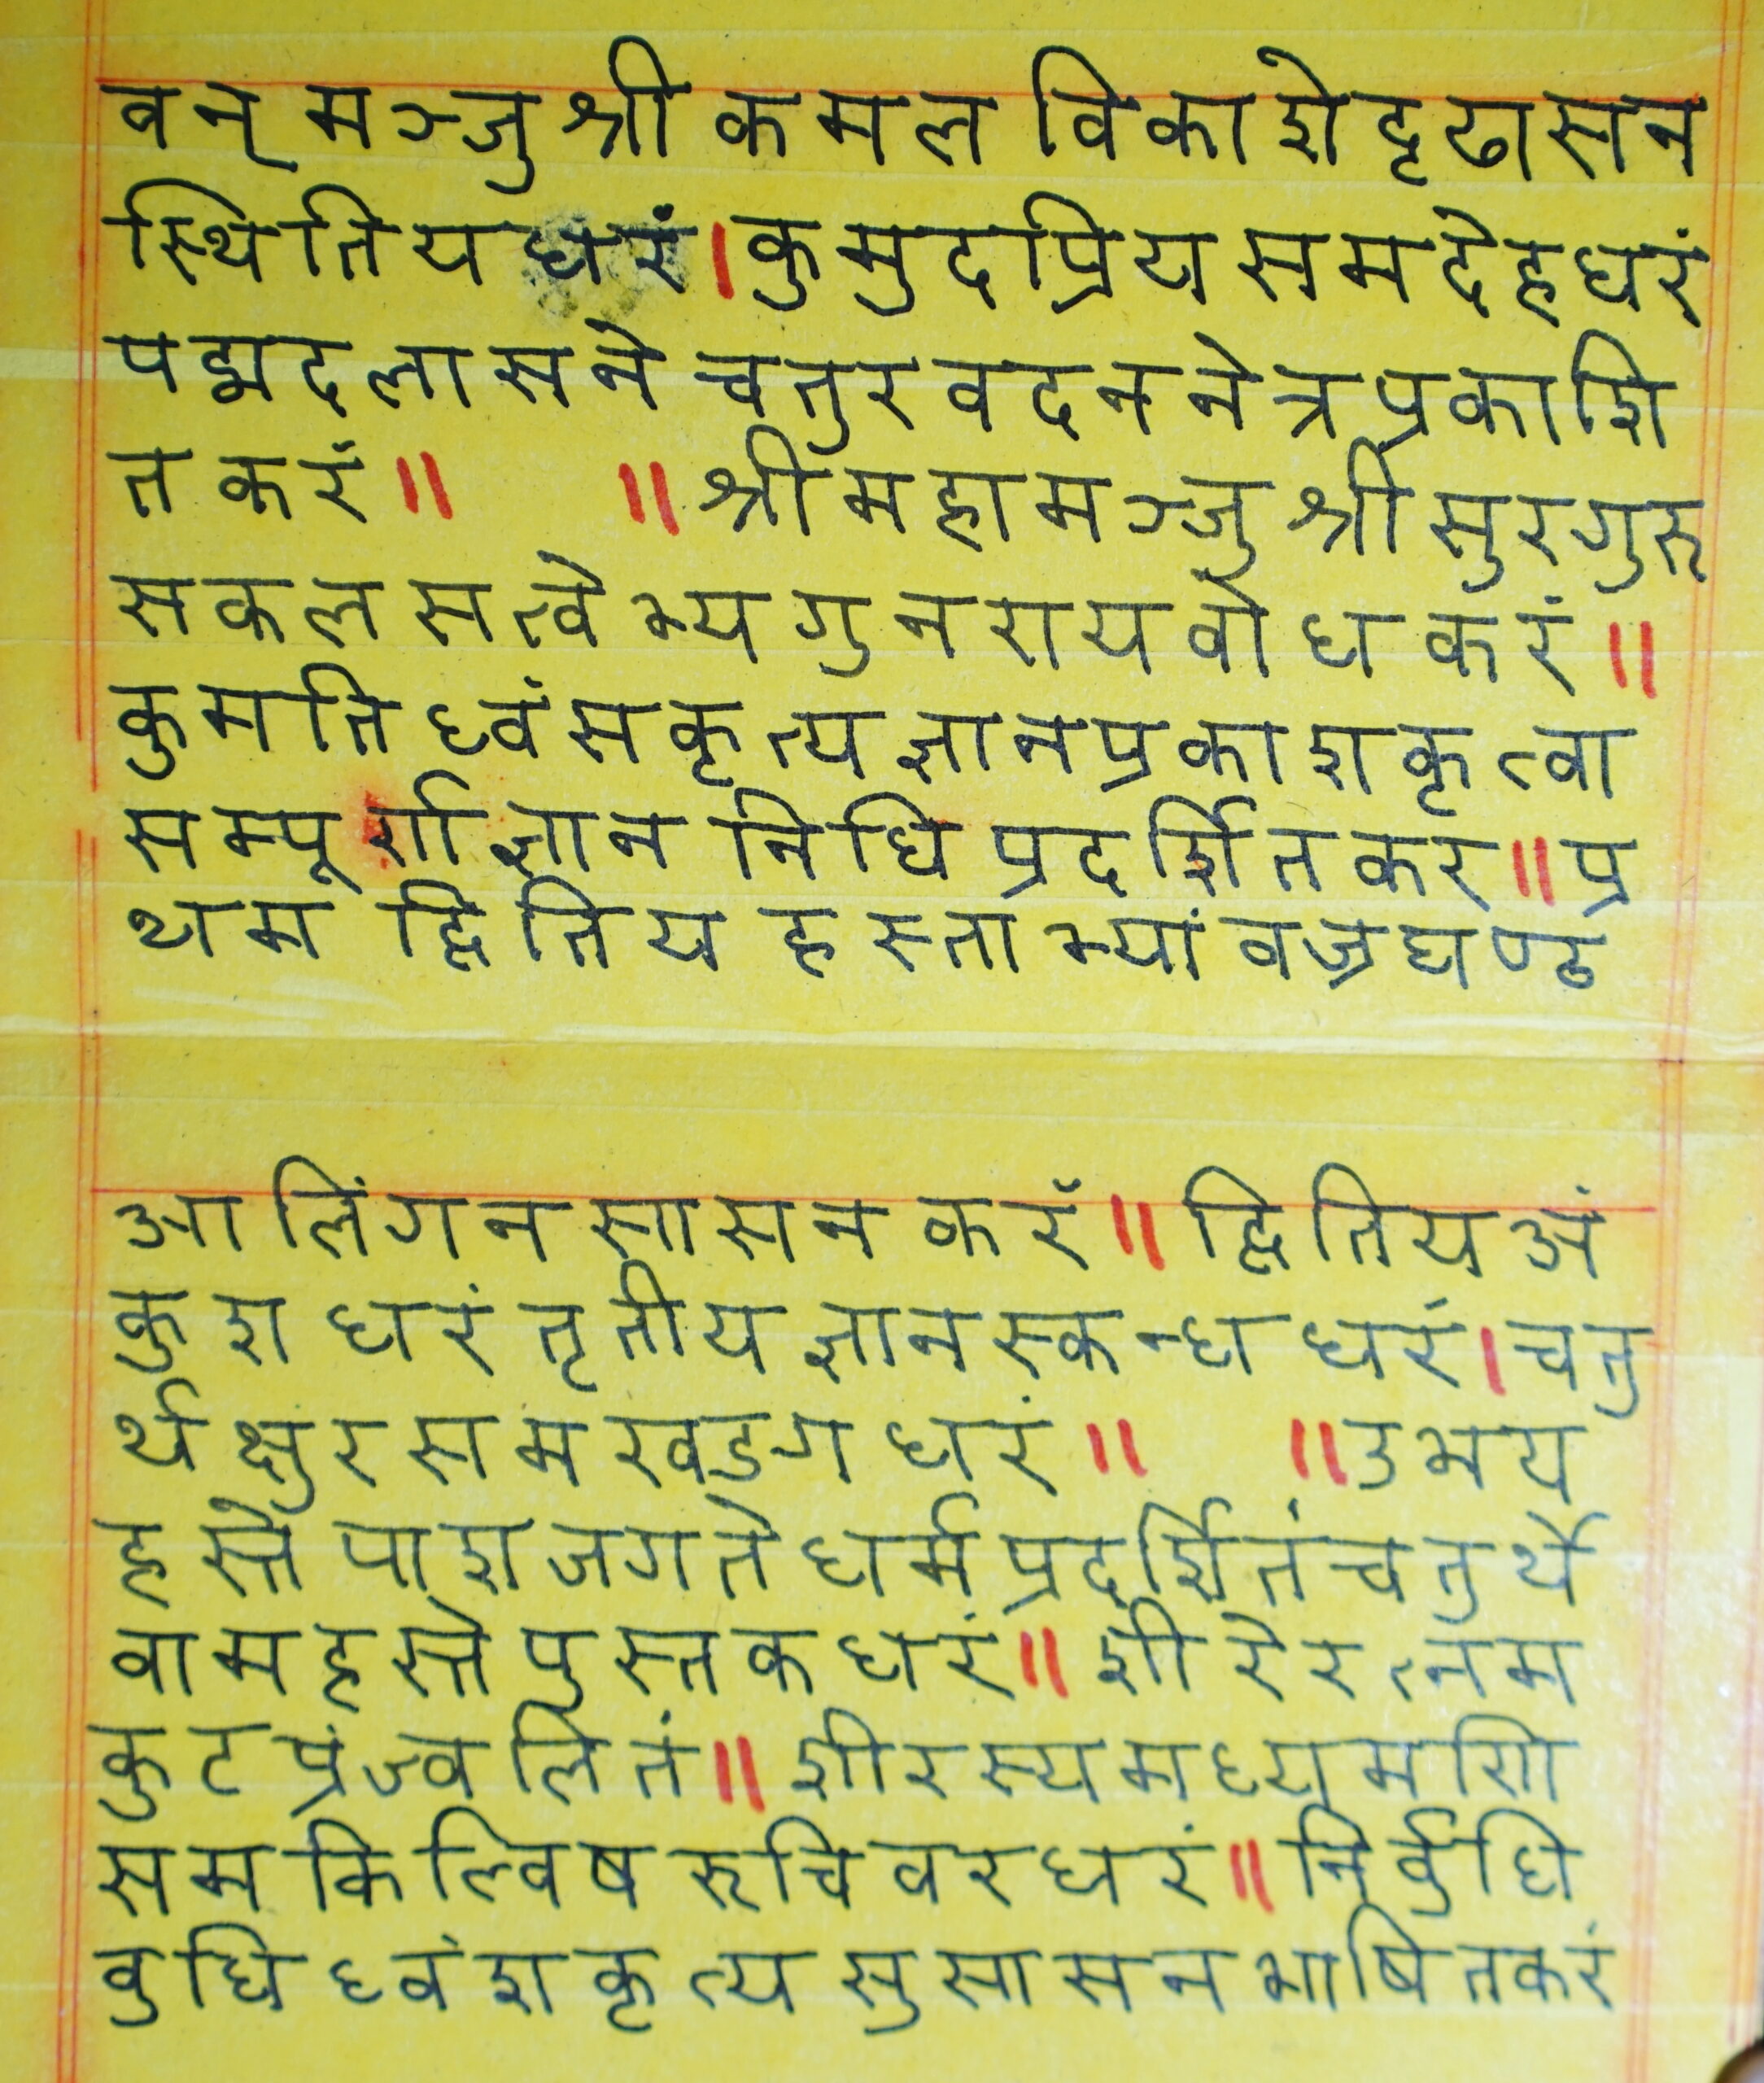 वन् मञ्जुश्री कमल विकाशे दृढासन
स्थितिय धरं। कुमुदप्रिय समदेहधरं
पद्मदलासने चतुर वदन नेत्र प्रकाशि
त करं॥ ॥ श्री महामञ्जुश्री सुरगुरु
सकल सत्वेभ्य गुनराय वोध करं॥
कुमति ध्वंस कृत्य ज्ञान प्रकाश कृत्वा
सम्पूर्ण ज्ञान निधि प्रदर्शित कर॥ प्र
थम द्वितिय हस्ताभ्यां वज्रघण्ठ
आलिंगन सासन करं॥ द्वितिय अं
कुश धरं तृतीय ज्ञान स्कन्धा धरं। चतु
र्थ क्षुर सम खड्ग धरं॥ ॥ उभय
हस्ते पाश जगते धर्म प्रदर्शितं चतुर्थे
वाम हस्ते पुस्तक धरं॥ शीरे रत्नम
कुट प्रंज्वलितं॥ शीरस्य मध्य मणि
सम किल्विष रुचि वर धरं॥ निर्वुधि
वुधि ध्वंश कृत्य सुसासन भाषित करं